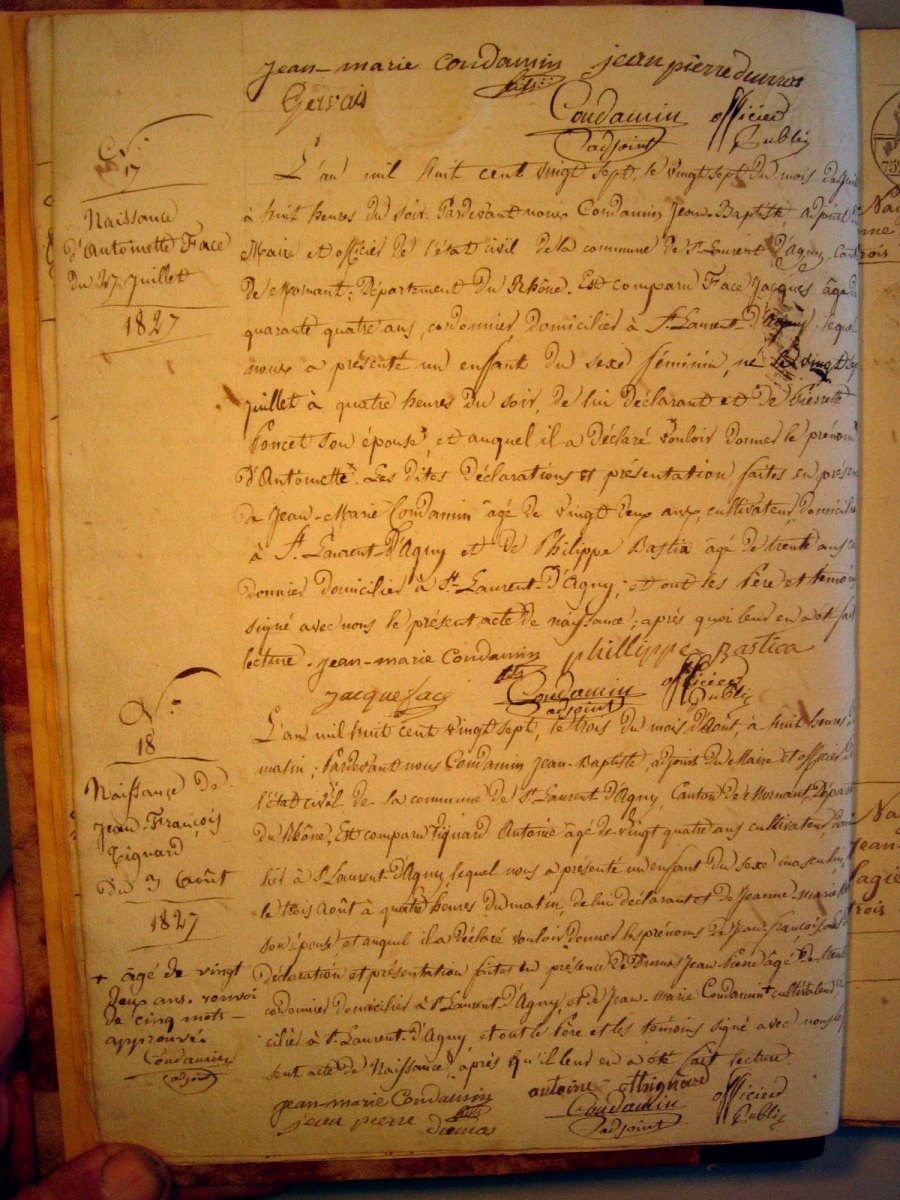 jean-marie condamin jean pierre dumas
fils
Gervais
Condamin officier
adjoint Public
N.° 17
Naissance
d'Antoinette Face
du 27 Juillet
1827
L'an mil huit cent vingt sept, le vingt sept du mois de
à huit heures du soir. Pardevant nous Condamin Jean-Baptiste adjoint
Maire et officier de l'état civil de la commune de St Laurent d'Agny,
de Mornant, Département du Rhône. Est comparu Face Jacques âgé
quarante quatre ans, cordonnier, domicilier à St Laurent-d'Agny, lequel
nous a présenté un enfant du sexe féminin, né le vingt
juillet à quatre heures du soir, de lui déclarant et de Pierrette
Poncet son épouse, et auquel il a déclaré vouloir donner le prénom
d'Antoinette. Les dites déclarations et présentation faites en présen
de Jean-Marie Condamin âgé de vingt deux ans, cultivateur, domicilié
à St Laurent-d'Agny et de Philippe Bastia âgé de trente ans
donnier domicilier à St Laurent-d'Agny; et ont les Père et temoin
signé avec nous le présent acte de naissance; après quoi leur en a été fait
lecture. jean-marie condamin phillippe Bastica
fils
jacque face Condamin officier
adjoint Public
N.° 18
Naissance de
Jean-François
Tignard
du 3 Août
1827
L'an mil huit cent vingt sept, le trois du mois d'Août, à huit heures
matin; Pardevant nous Condamin Jean-Baptiste, adjoint du Maire et officier
l'état civil de la commune de St Laurent d'Agny, Canton de Mornant, Dépar
du Rhône, Est comparu Tignard Antoine âgé de vingt quatre ans cultivateur,
lier à St Laurent-d'Agny, lequel nous a présenté un enfant du sexe masculin,
le trois Août à quatre heures du matin, de lui déclarant et de Jeanne-marie
son épouse, et auquel il a déclaré vouloir donner les prénoms de Jean-françois
déclaration et présentation faites en présence de Dumas Jean Pierre âgé de
cordonnier domicilier à St Laurent-d'Agny, et de Jean-Marie Condamin + cultivateur
cilier à St Laurent-d'Agny et ont le Père et les témoins signé avec nous le
sent acte de Naissance, après qu'il leur en a été fait lecture.
+ âgé de vingt
deux ans. renvoi
de cinq mots
approuvé.
Condamin
adjoint
jean-marie Condamin antoine thignard officier
fils Condamin Public
jean pierre duma adjoint